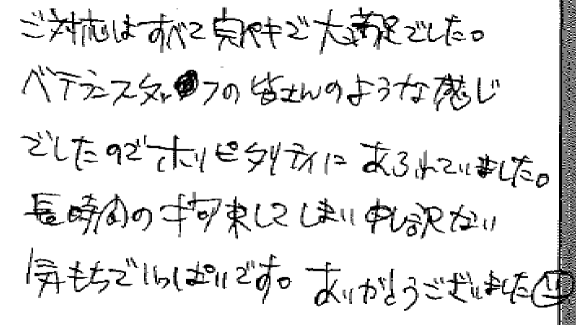 ご対応はすべて完ペキで大満足でした。
ベテランスタッフの皆さんのような感じ
でしたのでホスピタリティにあふれていました。
長時間の拘束してしまい申し訳ない
気もちでいっぱいです。ありがとうございました